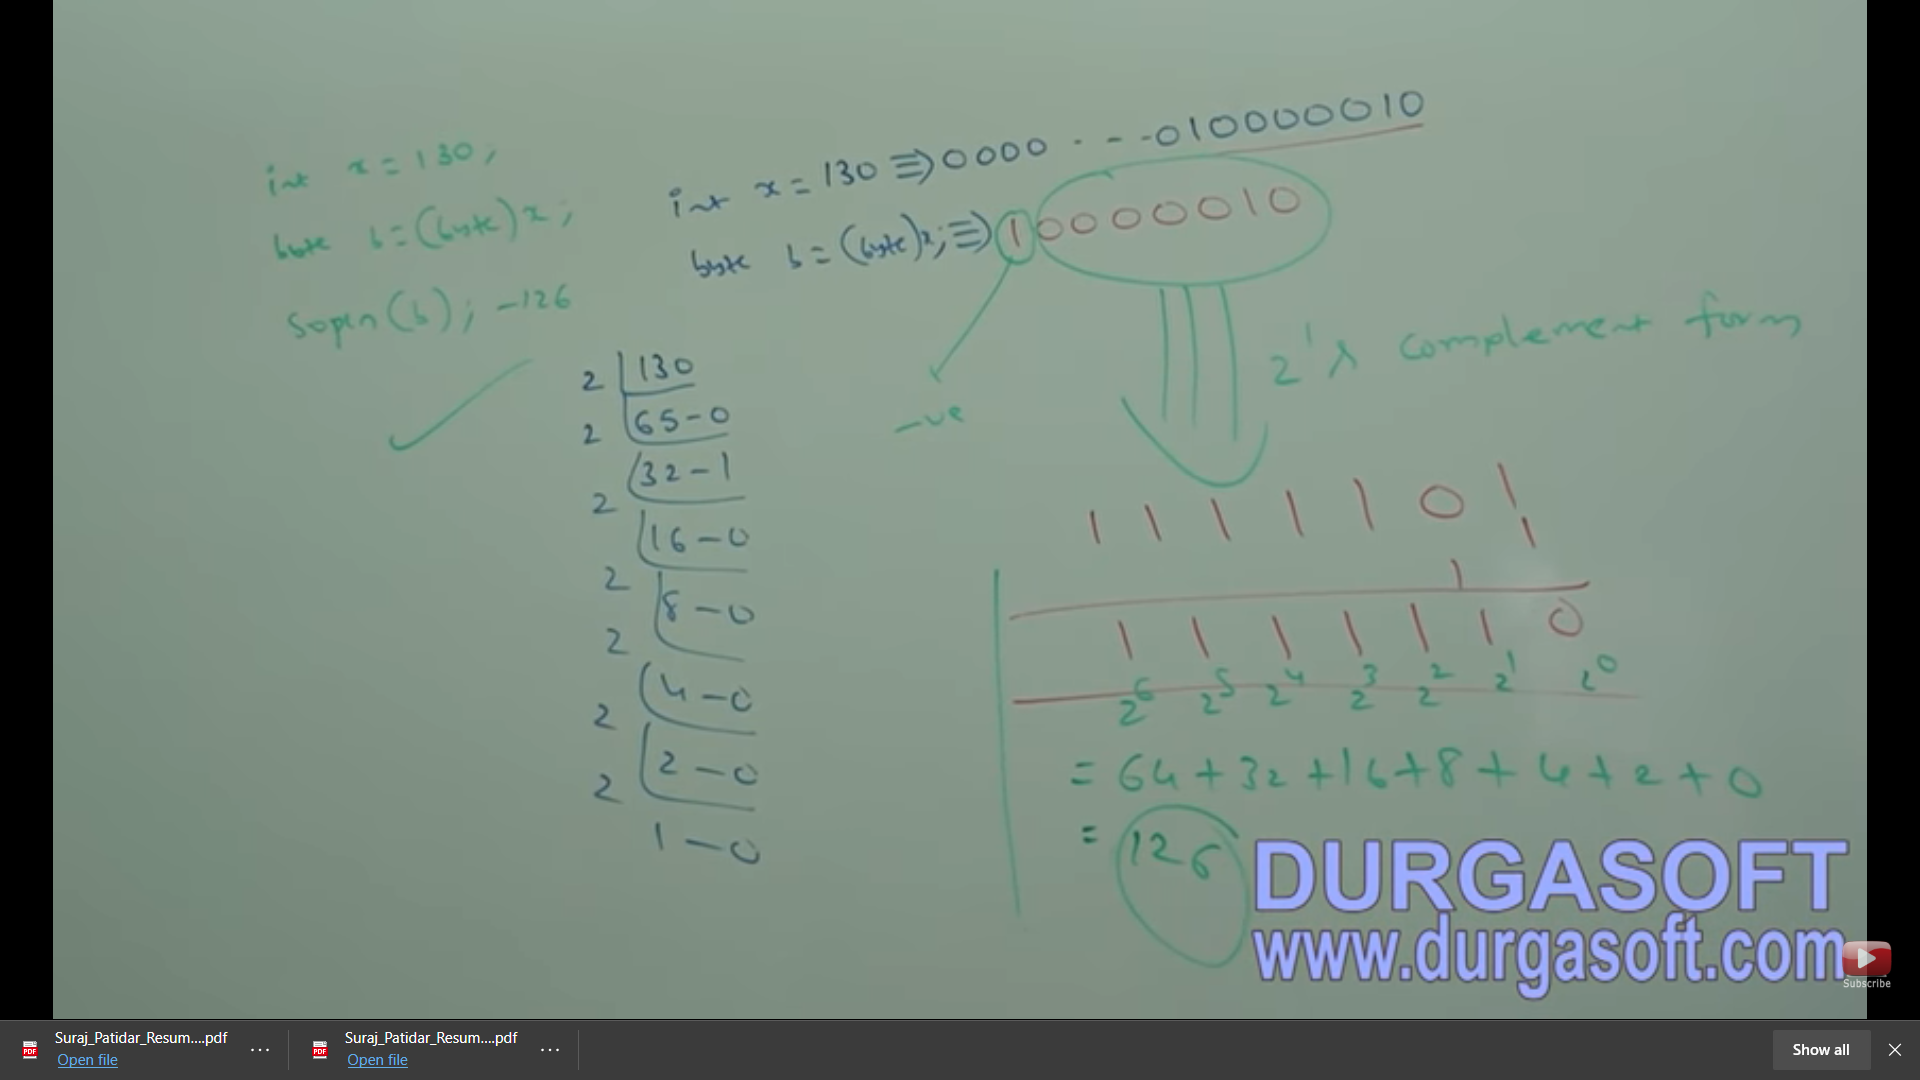 int x = 130;
byte b = (byte)x;
Sopln(b); -126
int x = 130 ≡) 0000 - - - 010000010
byte b = (byte)x; ≡) 10000010
-ve
2's complement form
2 130
2 65 - 0
32 - 1
2
16 - 0
2
8 - 0
2
4 - 0
2
2 - 0
2
1 - 0
1 1 1 1 1 0 1
1
1
1 1 1 1 1 1 0
2^6 2^5 2^4 2^3 2^2 2^1 2^0
= 64 + 32 + 16 + 8 + 4 + 2 + 0
= 126
DURGASOFT
www.durgasoft.com
Subscribe
Suraj_Patidar_Resum....pdf
Open file
Suraj_Patidar_Resum....pdf
Open file
Show all